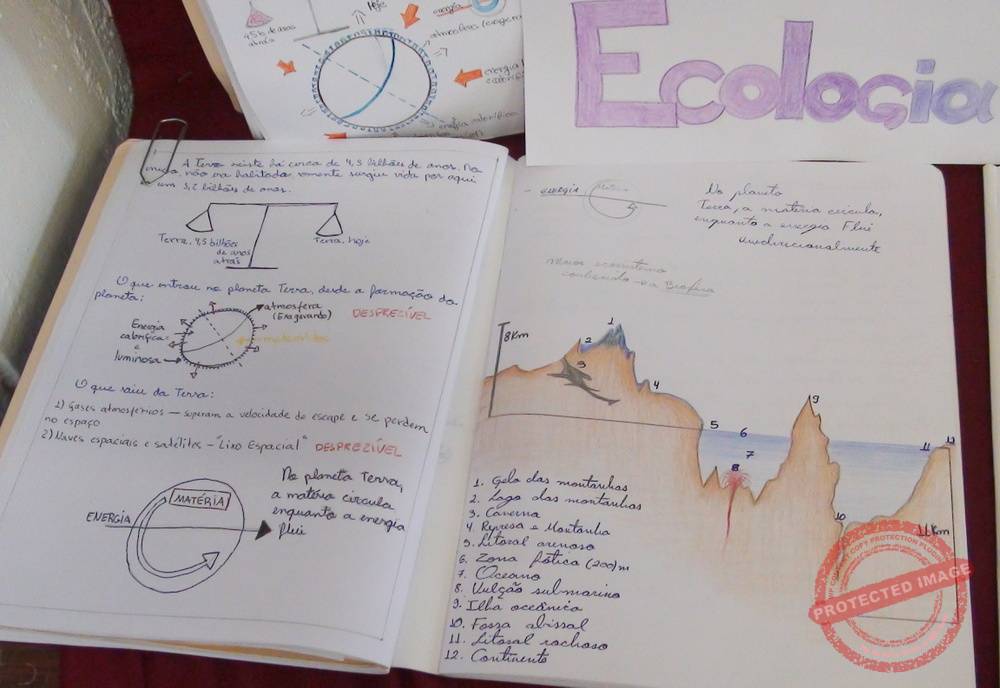 Hoje
4,5 b. de anos
atrás
energia
atmosfera (exagerando)
energia
Ecologia
A Terra existe há cerca de 4,5 bilhões de anos. No
início, não era habitada, somente surgiu vida por aqui
em 3,5 bilhões de anos.
Terra, 4,5 bilhões
de anos
atrás
Terra, hoje
O que entrou no planeta Terra, desde a formação do
planeta:
atmosfera
(Exagerando)
DESPREZÍVEL
Energia
calorífica
e
luminosa
meteoritos
O que saiu da Terra:
1) Gases atmosféricos — superam a velocidade de escape e se perdem
no espaço
2) Naves espaciais e satélites – "Lixo Espacial" DESPREZÍVEL
ENERGIA
MATÉRIA
No planeta Terra,
a matéria circula
enquanto a energia
flui
energia
No planeta
Terra, a matéria circula,
enquanto a energia Flui
unidirecionalmente
maior ecossistema
conhecido → a Biosfera
8Km
1
2
3
4
5
6
7
8
9
10
11
12
11Km
1. Gelo das montanhas
2. Lago das montanhas
3. Caverna
4. Represa e Montanha
5. Litoral arenoso
6. Zona fótica (200)m
7. Oceano
8. Vulcão submarino
9. Ilha oceânica
10. Fossa abissal
11. Litoral rochoso
12. Continente
PROTECTED IMAGE